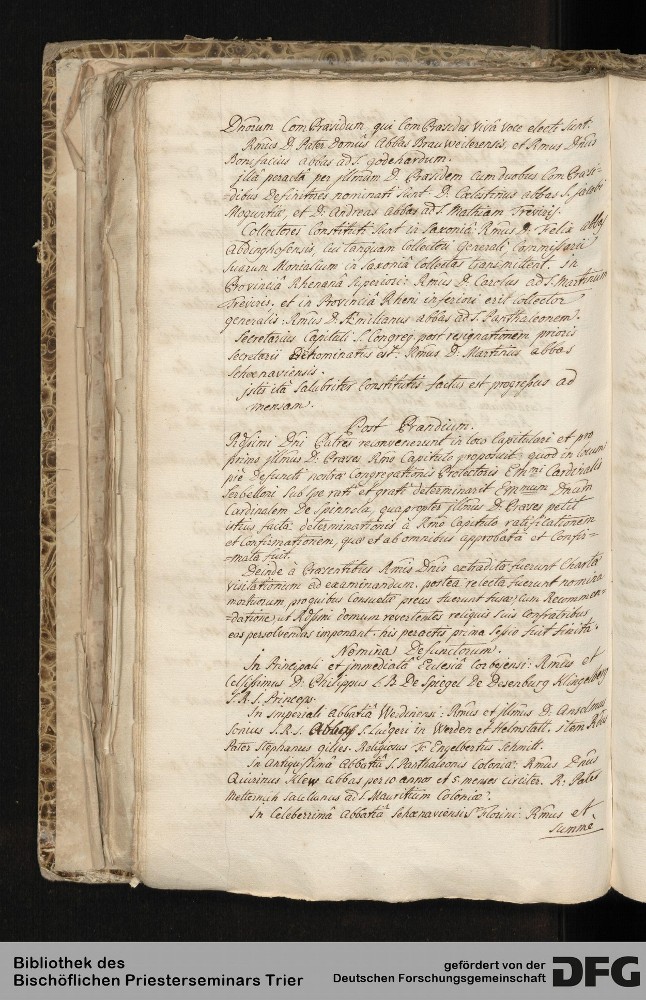 Dnorum ComPræsidum, qui ComPræsides vivâ voce electi sunt.
Rmus D. Pater Domus Abbas Brauweilerensis, et Rmus Dnus
Bonifacius abbas ad S. godehardum.
illâ peractâ per jllmum D. Præsidem cum duobus ComPræsi-
dibus Definitores nominati sunt. D. Cœlestinus abbas S. Jacobi
Moguntiæ, et D. Andreas Abbas ad S. Mathiam Treviris.
Collectores Constituti sunt in Saxoniâ Rmus D. Felix abbas
Abdinghofensis, cui tanquam Collectori Generali Commissarii
suarum Monialium in Saxoniâ Collectas transmittent. In
Provinciâ Rhenanâ superiori: Rmus D. Carolus ad S. Martinum
Treviris, et in Provinciâ Rheni inferiori erit collector
generalis: Rmus D. Æmilianus abbas ad S. Panthaleonem.
Secretarius Capituli S. Congreg. post resignationem prioris
Secretarii nominatus est. Rmus D. Martinus abbas
Schœnaviensis.
jstis ita salubriter Constitutis factus est progressus ad
mensam.
Post Prandium.
Rdssimi Dni Patres reconvenerunt in loco Capitulari et pro
primo jllmus D. Præses Rmo Capitulo proposuit, quod in locum
pie defuncti nostræ Congregationis Protectoris Emni Cardinalis
Serbelloni sub spe rati et grati determinarit Emnum Dnum
Cardinalem De Spinnola, quapropter jllmus D. Præses petiit
istius factæ determinationis à Rmo Capitulo ratificationem
et Confirmationem, quæ et ab omnibus approbata et Confir-
mata fuit.
Deinde à Præsentibus Rmis Dnis extradita fuerunt Charta
visitationum ad examinandum. postea relecta fuerunt nomina
mortuorum pro quibus Consuetæ preces fuerunt fusæ, cum Recommen-
datione, ut Rdssimi domum revertentes reliquis suis Confratribus
eas persolvendas imponant. his peractis prima sessio fuit finita.
Nomina Defunctorum.
In Principali et jmmediatâ Ecclesiâ Corbejensi: Rmus et
Celsissimus D. Philippus L. B. De Spiegel de Desenburg Klingelberg
S. R. I. Princeps.
In Imperiali Abbatiâ Werdinensi: Rmus et jllmus D. Anselmus
Sonius S. R. I. Abbas S. Lutgeri in Werden et Helmstatt. item Rdus
Pater Stephanus gilies. Religiosus Fr. Engelbertus Schmitt.
In Antiquissimâ Abbatiâ S. Panthaleonis Coloniæ: Rmus Dnus
Quirinus Klew abbas per 10 annos et 5 menses circiter. R. Pater
Metternich Sacellanus ad S. Mauritium Coloniæ.
In Celeberrimâ Abbatiâ Schœnaviensi Sti Florini: Rmus et
summe
Bibliothek des
Bischöflichen Priesterseminars Trier
gefördert von der
Deutschen Forschungsgemeinschaft
DFG